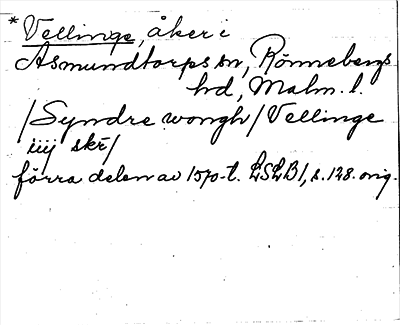 * Vellinge, åker i
Asmundtorps sn, Rönnebergs
hd, Malm. l.
/Syndre wongh/ Vellinge
iiij skr/
förra delen av 1570-t. LSLB1, s. 128. orig.